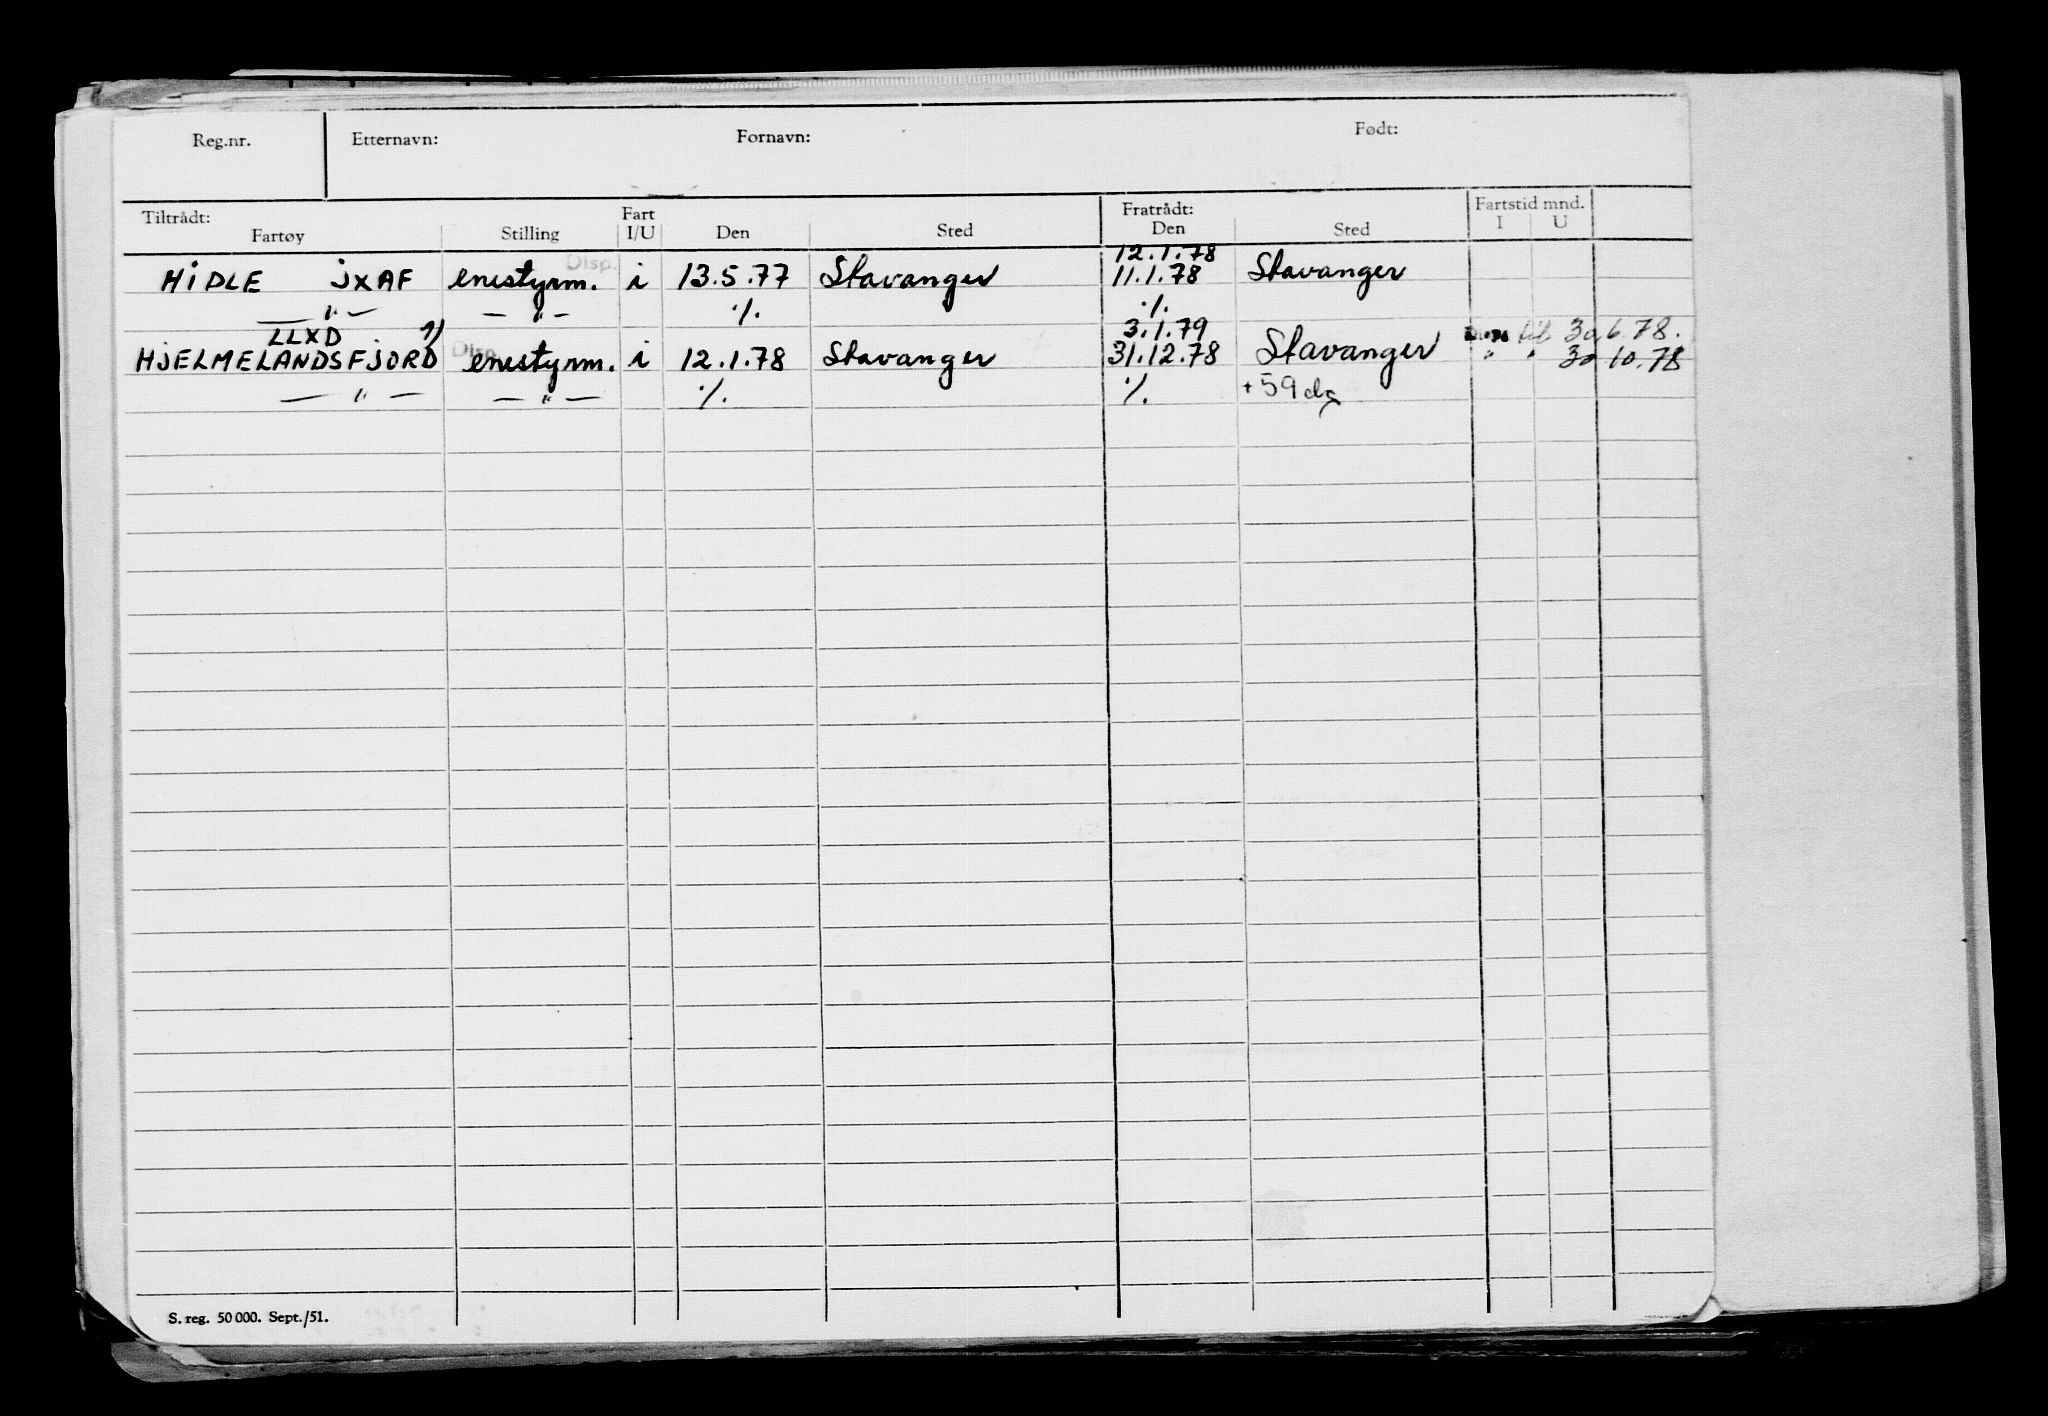 Reg.nr. Etternavn: Fornavn: Født:
Tiltrådt: Fart Fratrådt: Fartstid mnd.
Fartøy Stilling I/U Den Sted Den Sted I U
Disp. 12.1.78
HIDLE JXAF enestyrm. i 13.5.77 Stavanger 11.1.78 Stavanger
— " — — " — ·/. ·/.
LLXD 3.1.79 til 30.6.78.
HJELMELANDSFJORD Disp. enestyrm. i 12.1.78 Stavanger 31.12.78 Stavanger " " 30.10.78
— " — — " — ·/. ·/. + 59 dg
S. reg. 50 000. Sept./51.